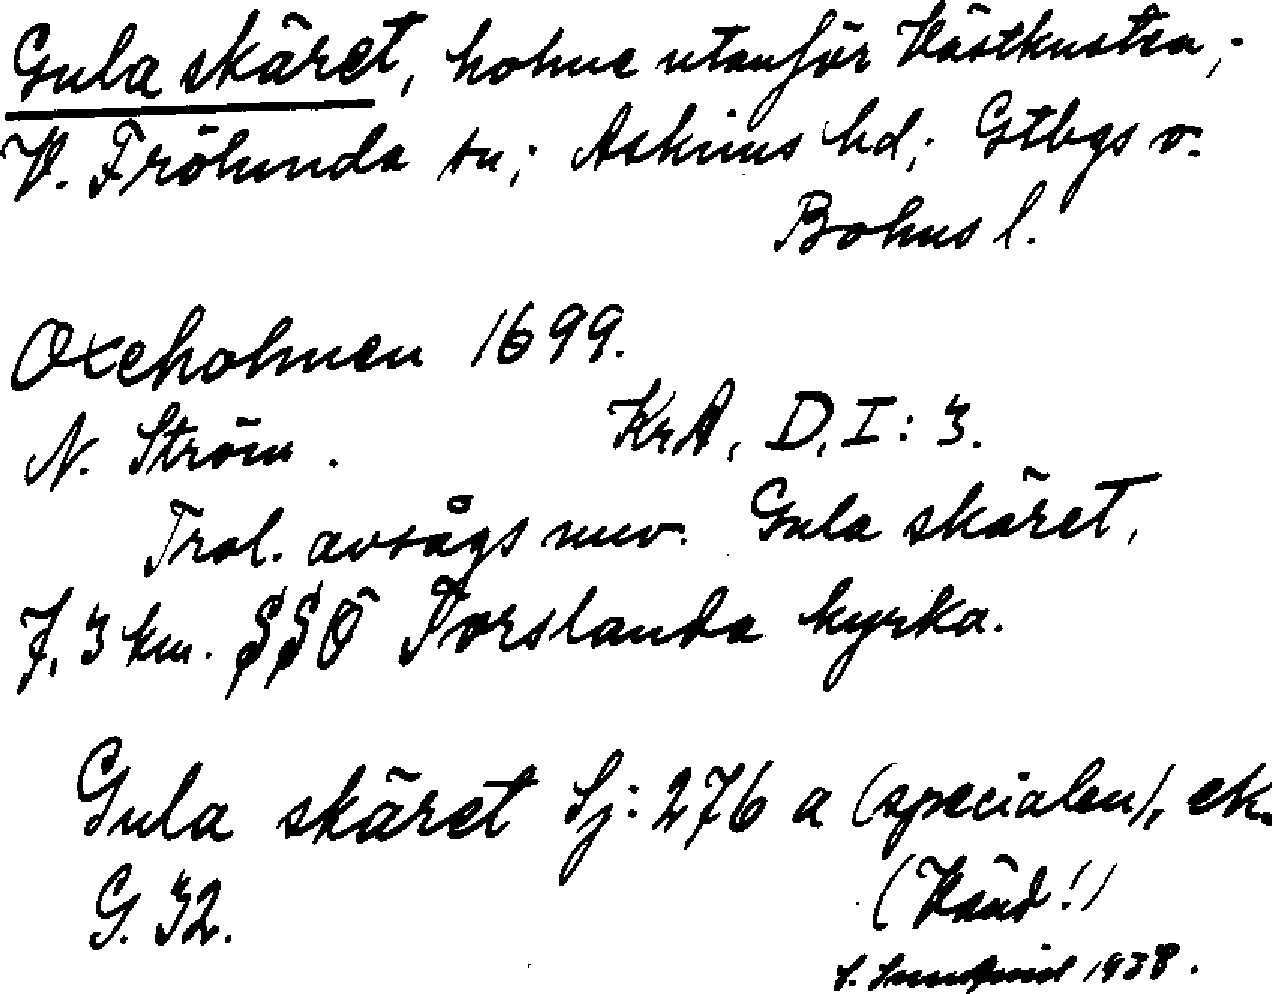 Gula skäret, holme utanför Västkusten;
V. Frölunda sn; Askims hd; Gtbgs o.
Bohus l.
Oxeholmen 1699.
N. Ström. KrA, D, I: 3.
Trol. avsågs nuv. Gula skäret,
7,3 km. SSÖ Torslanda kyrka.
Gula skäret Sj: 276 a (specialen), ek.
G. 32.
(Vänd!)
1938.